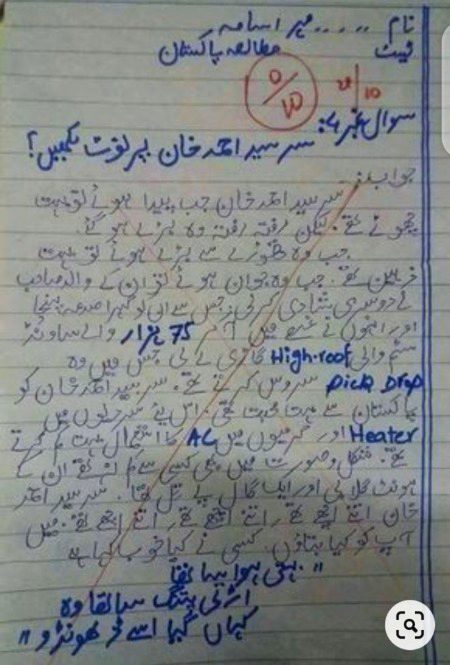 نام ..... میر اسامہ
ٹیسٹ مطالعہ پاکستان
0/10
29/10
سوال نمبر 4: سر سید احمد خان پر نوٹ لکھیں؟
جواب: سر سید احمد خان جب پیدا ہوئے تو بہت
چھوٹے تھے۔ لیکن رفتہ رفتہ وہ بڑے ہو گئے۔
جب وہ تھوڑے سے بڑے ہوئے تو بہت
ذہین تھے۔ جب وہ جوان ہوئے تو ان کے والد صاحب
نے دوسری شادی کر لی۔ جس سے ان کو گہرا صدمہ پہنچا
اور انہوں نے غصے میں آ کر 75 ہزار والے ساونڈ
سسٹم والی High-roof گاڑی لے لی جس میں وہ
Pick Drop سروس کرتے تھے۔ سر سید احمد خان کو
پاکستان سے بہت محبت تھی۔ اس لیے سردیوں میں
Heater اور گرمیوں میں AC کا استعمال بہت کم کرتے
تھے۔ شکل و صورت میں بھی کسی سے کم نہ تھے ان کے
ہونٹ گلابی اور ایک گال پے تل تھا۔ سر سید احمد
خان اتنے اچھے تھے، اتنے اچھے تھے، اتنے اچھے تھے۔ میں
آپ کو کیا بتاؤں۔ کسی نے کیا خوب کہا ہے
"بہتی ہوا سا تھا
اڑتی پتنگ سا تھا وہ
کہاں گیا اسے ڈھونڈو"